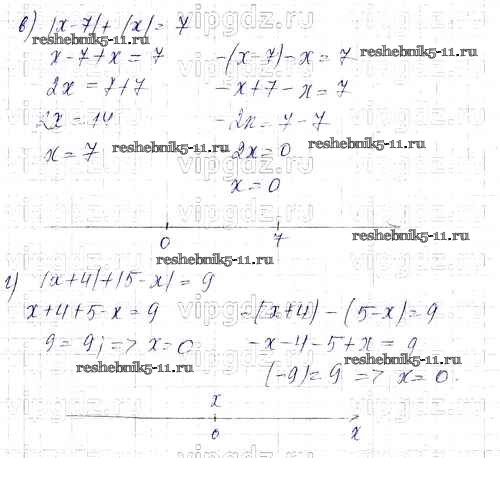 в) |x-7|+|x|= 7
reshebnik5-11.ru
x-7+x = 7 -(x-7)-x = 7
reshebnik5-11.ru
2x = 7+7 -x+7-x = 7
2x = 14 -2x = 7-7
x = 7 reshebnik5-11.ru 2x = 0 reshebnik5-11.ru
x = 0
0 7 reshebnik5-11.ru
reshebnik5-11.ru
г) |x+4|+|5-x| = 9
x+4+5-x = 9 -(x+4) - (5-x) = 9
9 = 9; => x = 0 -x-4-5+x = 9
reshebnik5-11.ru reshebnik5-11.ru
(-9) = 9 => x = 0.
x
0 x
vipgdz.ru